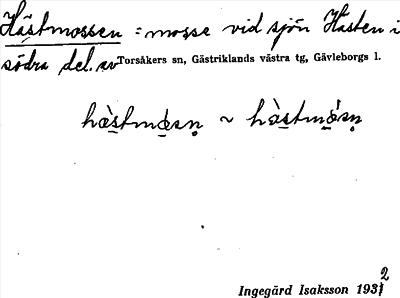 Hästmossen = mosse vid sjön Hästen i
södra del. av Torsåkers sn, Gästriklands västra tg, Gävleborgs l.
hæ̀stmå̀sn̥ ~ hæ̀stmǻsn̥
Ingegärd Isaksson 1932